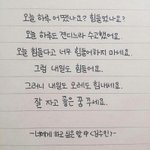 오늘 하루 어땠나요? 힘들었나요?
오늘 하루도 견디느라 수고했어요.
오늘 힘들다고 너무 힘들어하지 마세요.
그럼 내일도 힘들어요.
그러니 내일도 모레도 힘내세요.
잘 자고 좋은 꿈 꾸세요.
-너에게 하고 싶은 말 中 <김수민>-